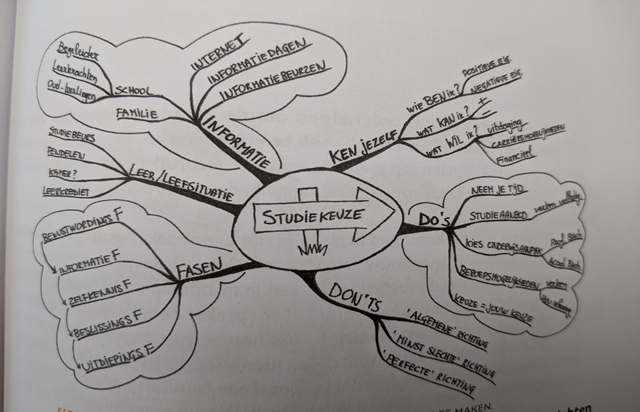 STUDIEKEUZE
INFORMATIE
INTERNET
INFORMATIEDAGEN
INFORMATIEBEURZEN
SCHOOL
Begeleider
Leerkrachten
Oud-leerlingen
FAMILIE
KEN JEZELF
WIE BEN ik?
POSITIEVE EIG.
NEGATIEVE EIG.
WAT KAN ik?
+
-
WAT WIL ik?
uitdaging
CARRIÈREMOGELIJKHEDEN
Financieel
LEER/LEEFSITUATIE
STUDIEBEURS
PENDELEN
KAMER?
LEERKREDIET
DO's
NEEM JE TIJD
STUDIEAANBOD
kies
BEROEPSMOGELIJKHEDEN
KEUZE = JOUW KEUZE
FASEN
BEWUSTWORDINGS F
INFORMATIE F
ZELFKENNIS F
BESLISSINGS F
UITDIEPINGS F
DON'TS
'ALGEMENE' RICHTING
'MINST SLECHTE' RICHTING
'PERFECTE' RICHTING
MAKEN.